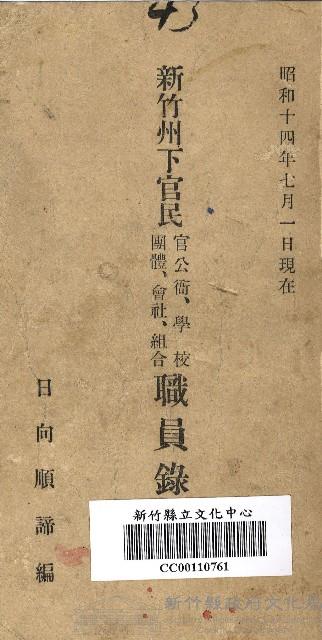 43
昭和十四年七月一日現在
新竹州下官民
官公衙、學校
團體、會社、組合
職員錄
日向順諦編
新竹縣立文化中心
CC00110761
新竹縣政府文化局